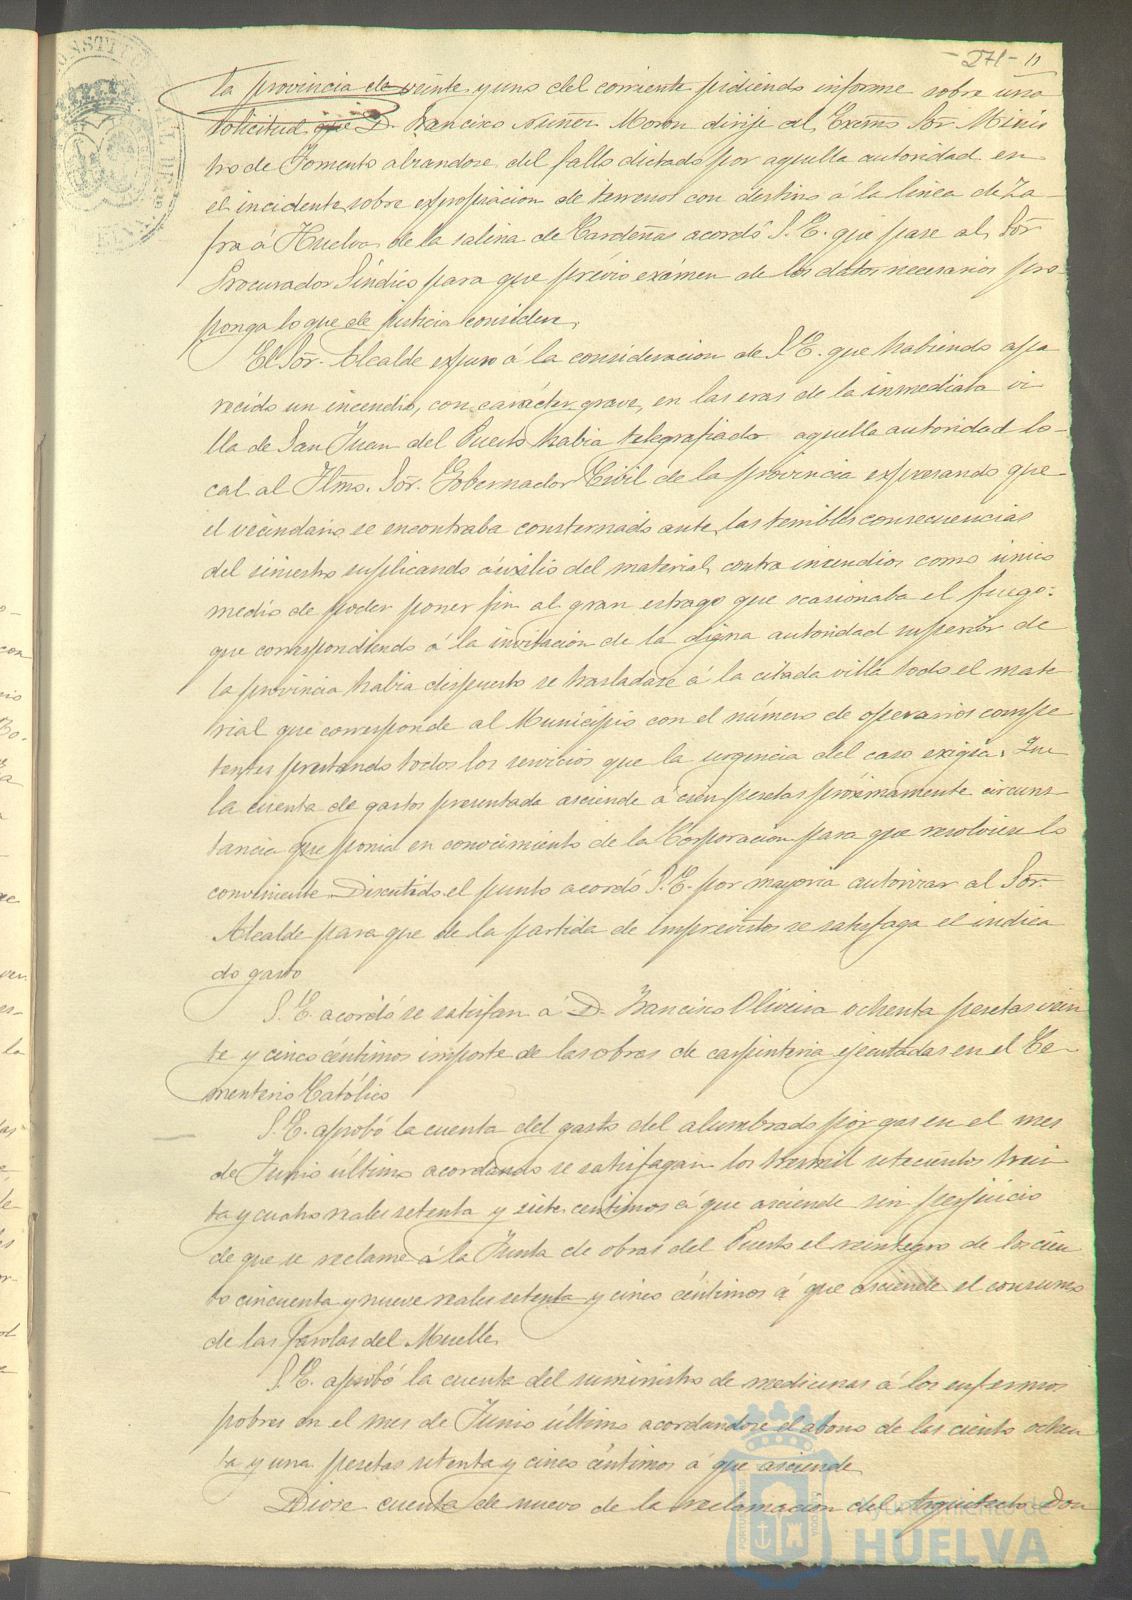 -271- 11
la provincia de veinte y uno del corriente pidiendo informe sobre una
solicitud que D. Francisco Nuñez Moron dirije al Excmo Sor. Minis
tro de Fomento alzandose del fallo dictado por aquella autoridad en
el incidente sobre expropiacion de terrenos con destino á la linea de Za-
fra á Huelva de la salina de Cardeñas acordó S.E. que pase al Sor
Procurador Síndico para que prévio exámen de los datos necesarios pro-
ponga lo que de justicia considere.
El Sor. Alcalde expuso á la consideracion de S.E. que habiendo apa
recido un incendio, con carácter grave, en las eras de la inmediata vi
lla de San Juan del Puerto habia telegrafiado aquella autoridad lo-
cal al Iltmo. Sor. Gobernador Civil de la provincia expresando que
el vecindario se encontraba consternado ante las terribles consecuencias
del siniestro suplicando áuxilio del material contra incendios como único
medio de poder poner fin al gran estrago que ocasionaba el fuego:
que correspondiendo á la invitacion de la digna autoridad superior de
la provincia habia dispuesto se trasladase á la citada villa todo el mate
rial que corresponde al Municipio con el número de operarios compe
tentes prestando todos los servicios que la urgencia del caso exigia. Que
la cuenta de gastos presentada asciende á cien pesetas próximamente circuns-
tancia que ponia en conocimiento de la Corporacion para que resolviese lo
conveniente. Discutido el punto acordó S.E. por mayoria autorizar al Sor.
Alcalde para que de la partida de Imprevistos se satisfaga el indica
do gasto
S.E. acordó se satisfan á D. Francisco Oliveira ochenta pesetas vein
te y cinco céntimos importe de las obras de carpinteria ejecutadas en el Ce-
menterio Católico
S.E. aprobó la cuenta del gasto del alumbrado por gas en el mes
de Junio último acordando se satisfagan los tresmil setecientos trein
ta y cuatro reales setenta y siete centimos á que asciende sin perjuicio
de que se reclame á la Junta de obras del Puerto el reintegro de los cien
to cincuenta y nueve reales setenta y cinco céntimos á que asciende el consumo
de las farolas del Muelle.
S.E. aprobó la cuenta del suministro de medicinas á los enfermos
pobres en el mes de Junio último acordandose el abono de las ciento ochen
ta y una pesetas setenta y cinco céntimos á que asciende
Diose cuenta de nuevo de la reclamacion del Arquitecto Don
Ayuntamiento de
HUELVA